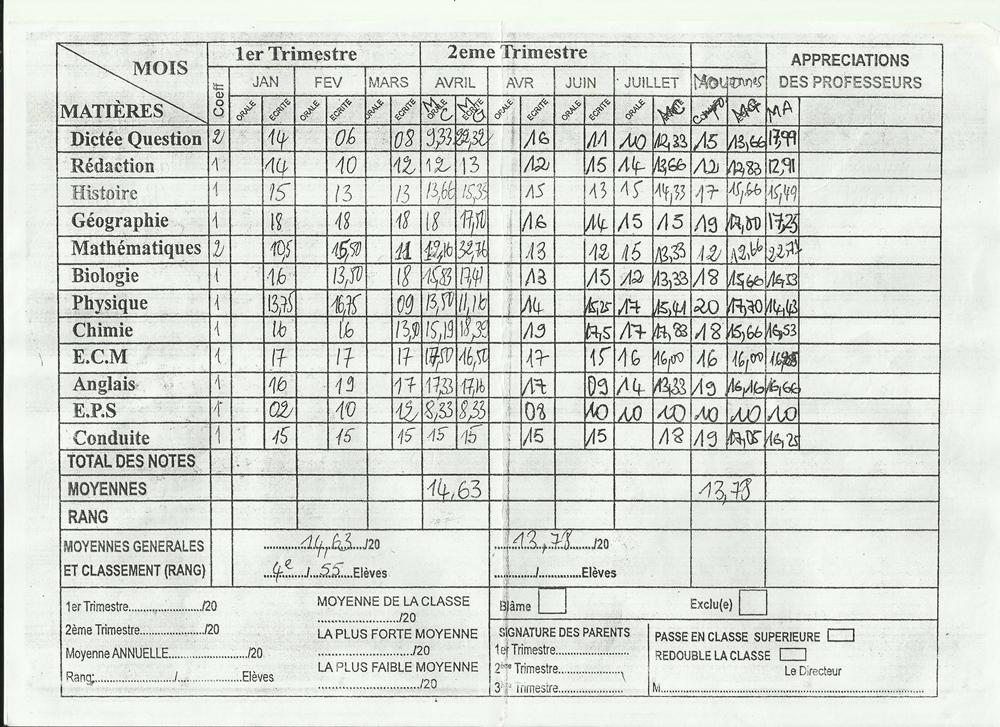 MOIS 1er Trimestre 2eme Trimestre APPRECIATIONS DES PROFESSEURS
MATIÈRES Coeff JAN FEV MARS AVRIL AVR JUIN JUILLET Moyennes
ORALE ECRITE ORALE ECRITE ORALE ECRITE ORALE ECRITE ORALE ECRITE ORALE ECRITE ORALE compo MA
Dictée Question 2 14 06 08 9,33 16 11 10 12,33 15 13,66
Rédaction 1 14 10 12 12 13 12 15 14 13,66 12 12,83 12,91
Histoire 1 15 13 13 13,66 15,33 15 13 15 14,33 17 15,66 15,49
Géographie 1 18 18 18 18 17,50 16 14 15 15 19 17,00 17,25
Mathématiques 2 10,5 15,50 11 13 12 15 13,33 12 12,66
Biologie 1 16 13,50 18 15,83 17,41 13 15 12 13,33 18 15,66
Physique 1 13,75 16,75 09 13,50 14 15,25 17 15,41 20 17,70 14,43
Chimie 1 16 16 15,19 18,39 19 17,5 17 17,83 18
E.C.M 1 17 17 17 17,50 16,50 17 15 16 16,00 16 16,00
Anglais 1 16 19 17 17,33 17,16 17 09 14 13,33 19 16,16 16,66
E.P.S 1 02 10 12 8,33 8,33 08 10 10 10 10 10 10
Conduite 1 15 15 15 15 15 15 15 18 19 16,25
TOTAL DES NOTES
MOYENNES 14,63 13,78
RANG
MOYENNES GENERALES 14,63 /20 13,78 /20
ET CLASSEMENT (RANG) 4e / 55 Elèves ........../..........Elèves
1er Trimestre...................../20
2ème Trimestre.................../20
Moyenne ANNUELLE..................../20
Rang:..................../....................Elèves
MOYENNE DE LA CLASSE
..................../20
LA PLUS FORTE MOYENNE
..................../20
LA PLUS FAIBLE MOYENNE
..................../20
Blâme Exclu(e)
SIGNATURE DES PARENTS
1er Trimestre....................
2ème Trimestre....................
Trimestre....................
PASSE EN CLASSE SUPERIEURE
REDOUBLE LA CLASSE
Le Directeur
M............................................................